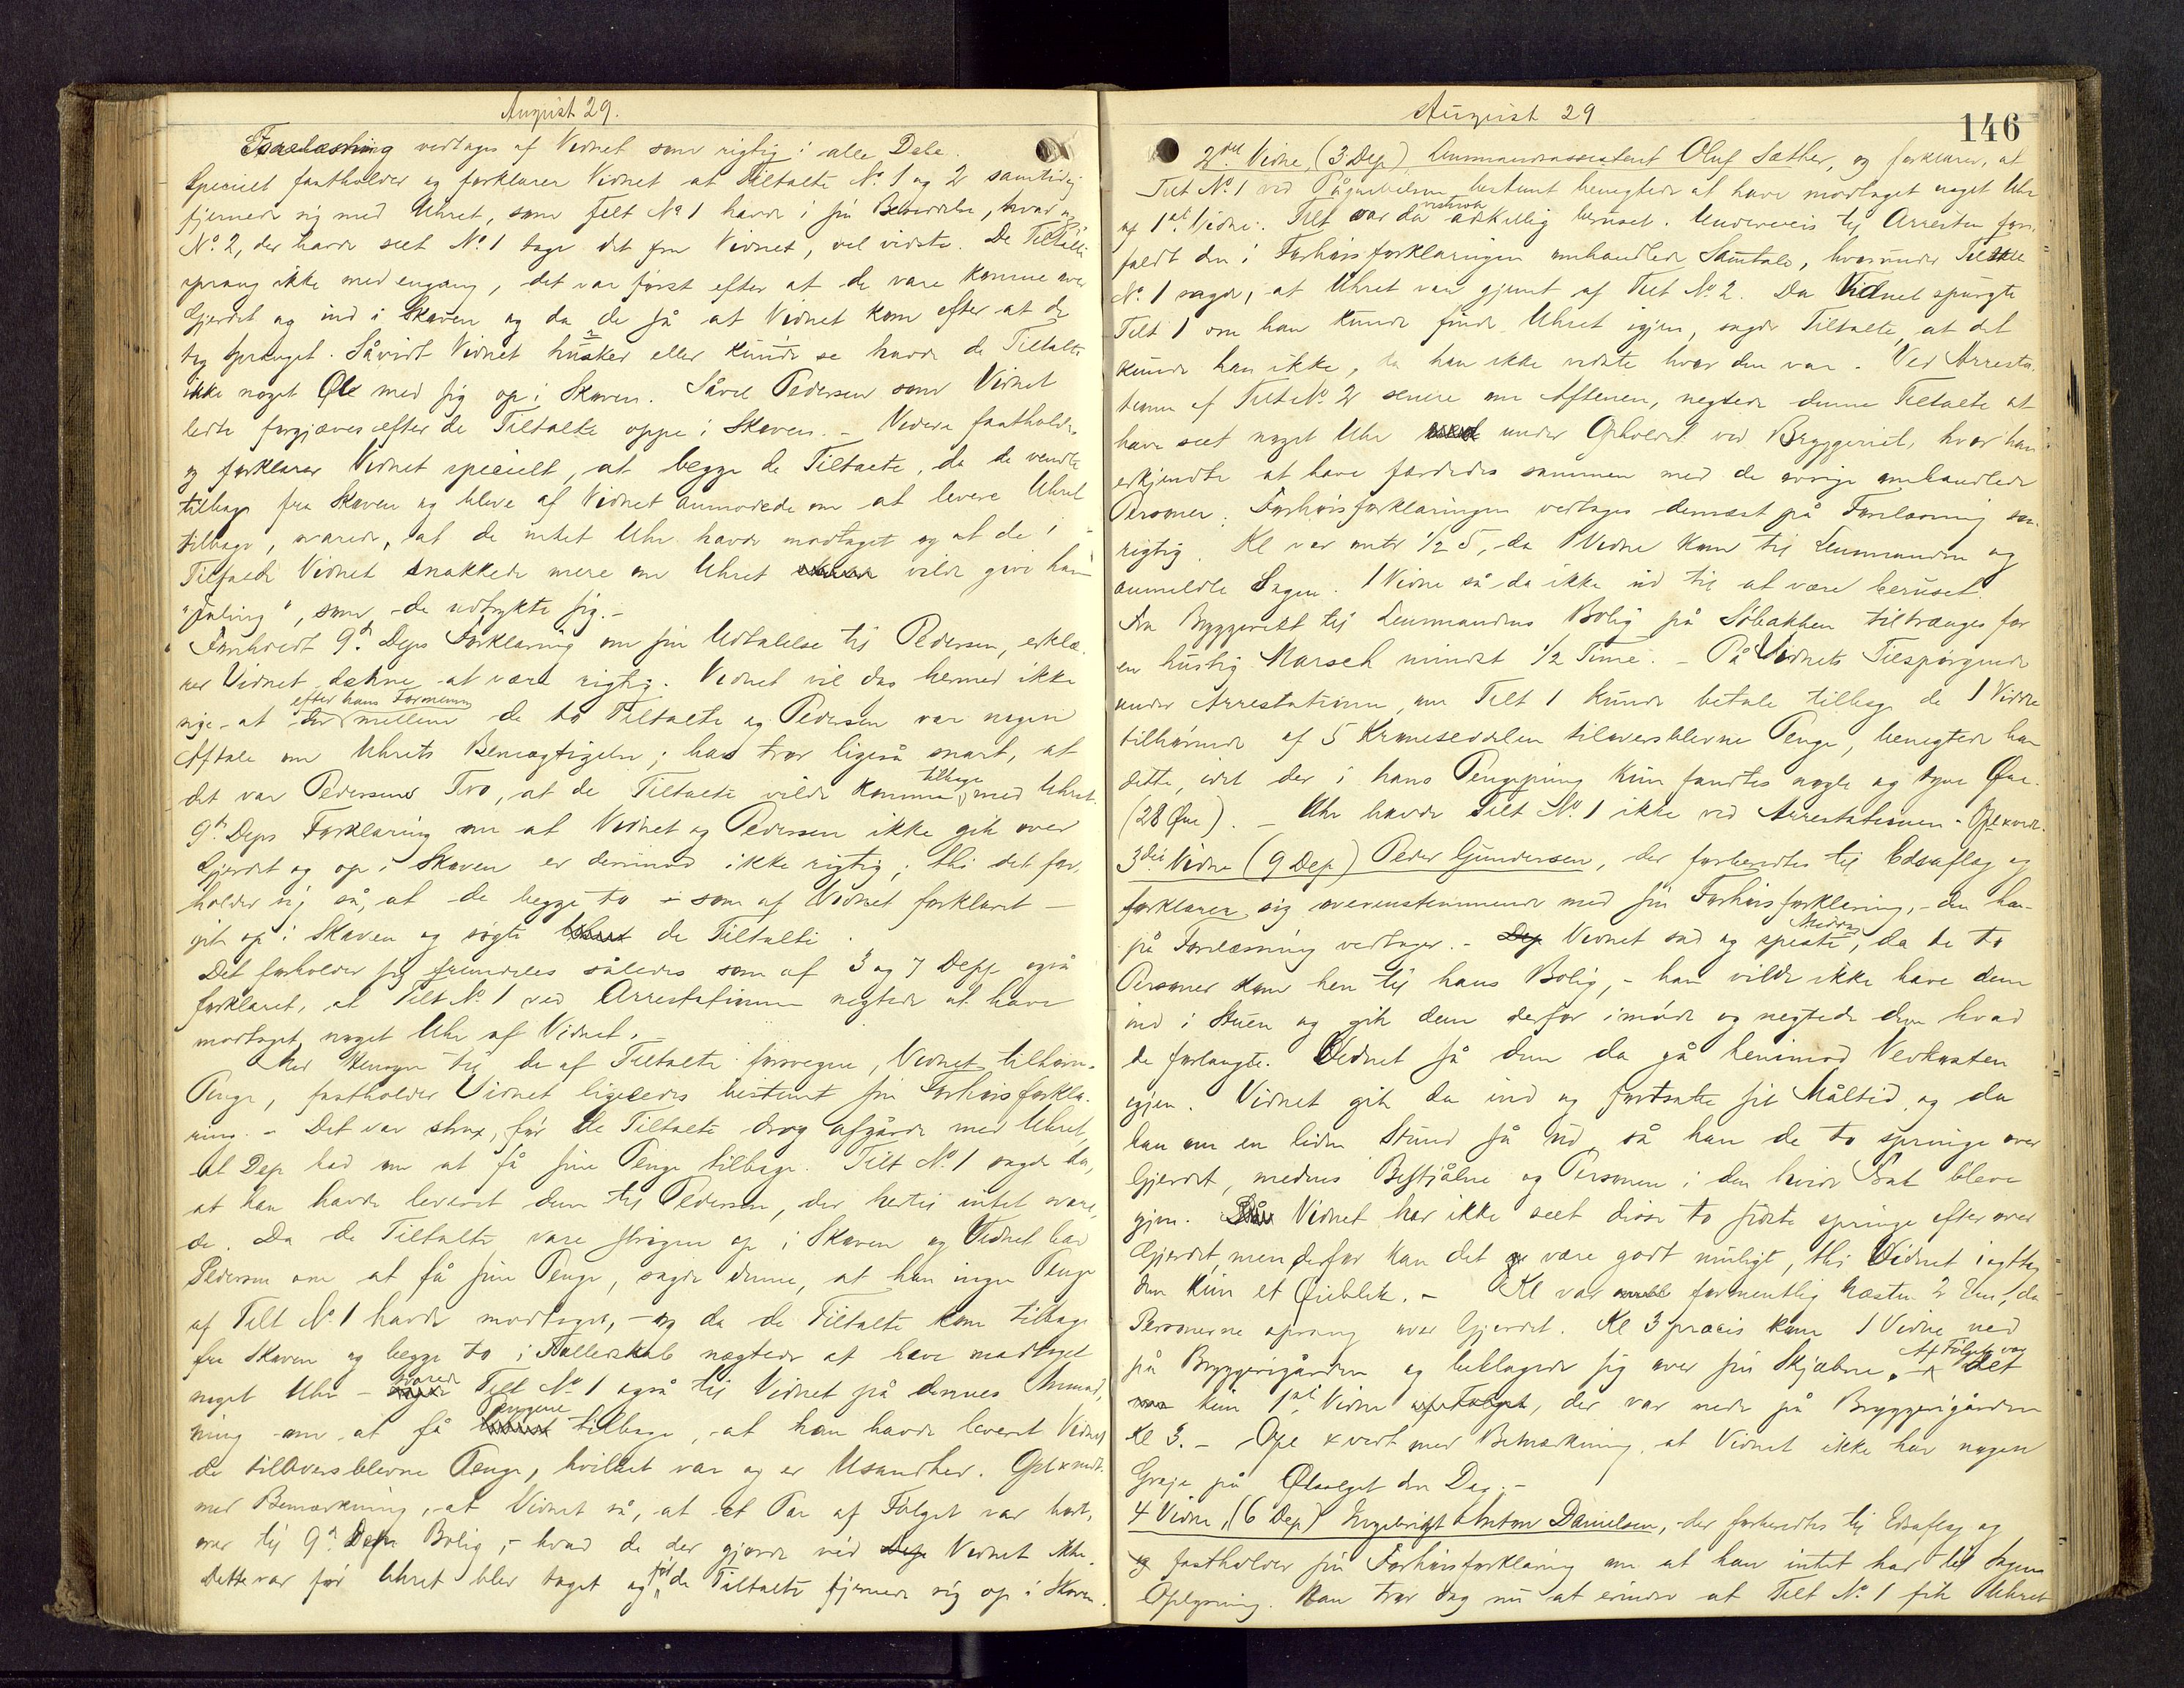 August 29.
Forelæsning vedtages af Vidnet som rigtig i alle Dele.
Specielt fastholder og forklarer Vidnet at Tiltalte No. 1 og 2 samtidig
fjernede sig med Uhret, som Telt No 1 havde i sin Besiddelse, hvad og
No. 2, der havde seet No. 1 tage det fra Vidnet, vel vidste. De Tiltalte
sprang ikke med engang, det var først efter at de vare komne over
Gjerdet og ind i Skoven og da de så at Vidnet kom efter at de
tog Spranget. Såvidt Vidnet husker eller kunde se havde de Tiltalte
ikke noget Øl med sig op i Skoven. Såvel Pedersen som Vidnet
ledte forgjæves efter de Tiltalte oppe i Skoven. – Videre fastholder
og forklarer Vidnet specielt, at begge de Tiltalte, da de vendte
tilbage fra Skoven og bleve af Vidnet anmodede om at levere Uhret
tilbage, svarede, at de intet Uhr havde modtaget og at de i
Tilfælde Vidnet snakkede mere om Uhret vilde give ham
"Juling", som de udtrykte sig. –
Foreholdt 9d Deps Forklaring om sin Udtalelse til Pedersen, erklæ-
rer Vidnet denne at være rigtig. Vidnet vil dog hermed ikke
sige at der efter hans Formening mellem de to Tiltalte og Pedersen var nogen
Aftale om Uhrets Bemægtigelse; han tror ligeså snart, at
det var Pedersens Tro, at de Tiltalte vilde komme tilbage med Uhret.
9d Deps Forklaring om at Vidnet og Pedersen ikke gik over
Gjerdet og op i Skoven er derimod ikke rigtig, thi det for-
holder sig så, at de begge to – som af Vidnet forklaret –
gik op i Skoven og søgte de Tiltalte.
Det forholder sig fremdeles således som af 3 og 7 Depp også
forklaret, at Telt No. 1 ved Arrestationen negtede at have
modtaget noget Uhr af Vidnet. –
Med Hensyn til de af Tiltalte forsvegne, Vidnet tilhør.
Penge, fastholder Vidnet ligeledes bestemt sin Forhørsforkla-
ring. – Det var strax, før de Tiltalte drog afgårde med Uhret,
at Dep bad om at få sine Penge tilbage. Telt No. 1 sagde da,
at han havde leveret dem til Pedersen, der hertil intet svare-
de. Da de Tiltalte vare sprungne op i Skoven og Vidnet bad
Pedersen om at få sine Penge, sagde denne, at han ingen Penge
af Telt No. 1 havde modtaget, – og da de Tiltalte kom tilbage
fra Skoven og begge to i Fællerskab nægtede at have modtaget
noget Uhr – svarede Telt No. 1 også til Vidnet på dennes Anmod-
ning om at få pengene tilbage, at han havde leveret Vidnet
de tilOversblevne Penge, hvilket var og er Usandhed. Opl & vedt.
med Bemærkning, at Vidnet så, at et Par af Følget var bort-
over til 9d Deps Bolig, – hvad de der gjorde véd Vidnet ikke.
Dette var før Uhret blev taget og før de Tiltalte fjernede sig op i Skoven.
August 29
146
2det Vidne, (3 Dep) Lensmandsassistent Oluf Sæther, og forklarer, at
Telt No. 1 ved Pågribelsen bestemt benegtede at have modtaget noget Uhr
af 1ste Vidne. Telt var da adskillig beruset. Underveis til Arresten fore-
faldt den i Forhørsforklaringen omhandlede Samtale, hvorunder Tiltalte
No. 1 sagde, at Uhret var gjemt af Telt No. 2. Da Vidnet spurgte
Telt 1 om han kunde finde Uhret igjen, sagde Tiltalte, at det
kunde han ikke, da han ikke vidste hvor den var. – Ved Arresta-
tionen af Telt No. 2 senere om Aftenen, negtede denne Tiltalte at
have seet noget Uhr under Opholdet ved Bryggeriet, hvor han
erkjendte at have færdedes sammen med de øvrige omhandlede
Personer. Forhørsforklaringen vedtages dernæst på Forelæsning som
rigtig. Kl var omtr ½ 5, da 1 Vidne kom til Lensmanden og
anmeldte Sagen. 1 Vidne så da ikke ud til at være beruset.
Fra Bryggeriet til Lensmandens Bolig på Solbakken tiltrænges for
en hurtig Marsch mindst ½ Time. – På Vidnets Tilspørgende
under Arrestationen, om Telt 1 kunde betale tilbage de 1 Vidne
tilhørende af 5 Kroneseddelen tiloversblevne Penge, benegtede han
dette, idet der i hans Pengepung kun fandtes nogle og tyve Øre.
(28 Øre). – Uhr havde Telt No. 1 ikke ved Arrestationen. – Opl & vedt.
3die Vidne (9 Dep) Peder Gundersen, der forberedtes til Edsaflæg og
forklarer sig overensstemmende med sin Forhørsforklaring, – den han
på Forelæsning vedtager. – Vidnet sad og spiste Middag, da de to
Personer kom hen til hans Bolig, – han vilde ikke have dem
ind i Stuen og gik dem derfor imøde og negtede dem hvad
de forlangte. Vidnet så dem da gå henimod Vedkasten
igjen. Vidnet gik da ind og fortsatte sit Måltid, og da
han om en liden Stund så ud, så han de to springe over
Gjerdet, medens Bestjålne og Personen i den hvide Hat bleve
igjen. Vidnet har ikke seet disse to sidste springe efter over
Gjerdet, men derfor kan det være godt muligt, thi Vidnet iagttog
dem kun et Øieblik. – Kl var formentlig næsten 2 Em, da
Personerne sprang over Gjerdet. Kl 3 præcis kom 1 Vidne ned
på Bryggerigården og beklagede sig over sin Skjæbne. – Af Følget var det
kun 1ste Vidne, der var nede på Bryggerigården
Kl 3. – Opl & vedt med Bemærkning, at Vidnet ikke har nogen
Greje på Ølsalget den Dag. –
4 Vidne, (6 Dep) Ingebrigt Anton Danielsen, der forberedtes til Edsaflæg og
fastholder sin Forhørsforklaring om at han intet har til Sagens
Oplysning. Han tror dog nu at erindre at Telt No. 1 fik Uhret